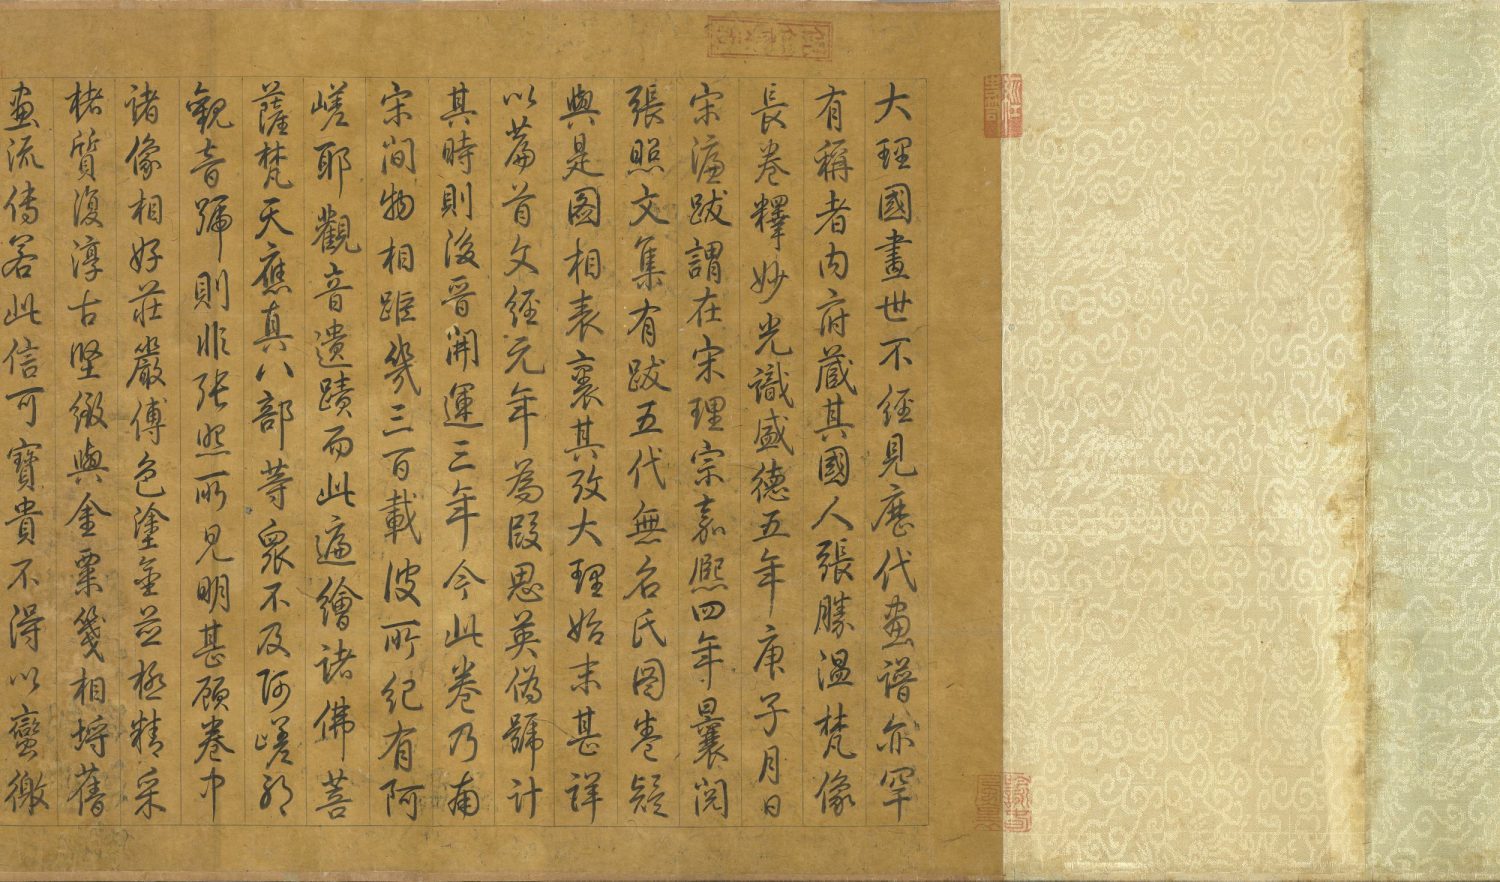 大理國畫世不經見歷代畫譜亦罕
有稱者内府藏其國人張勝溫梵像
長卷釋妙光識盛德五年庚子月日
宋濂跋謂在宋理宗嘉熙四年曩閱
張照文集有跋五代無名氏圖卷疑
與是圖相表裏其攷大理始末甚詳
以篇首文經元年為段思英偽號計
其時則後晉開運三年今此卷乃南
宋間物相距幾三百載彼所紀有阿
嵯耶觀音遺蹟而此遍繪諸佛菩
薩梵天應真八部等衆不及阿嵯耶
觀音號則非張照所見明甚顧卷中
諸像相好莊嚴傅色塗金並極精采
楮質復淳古堅緻與金粟箋相埒舊
畫流傳若此信可寶貴不得以蠻徼